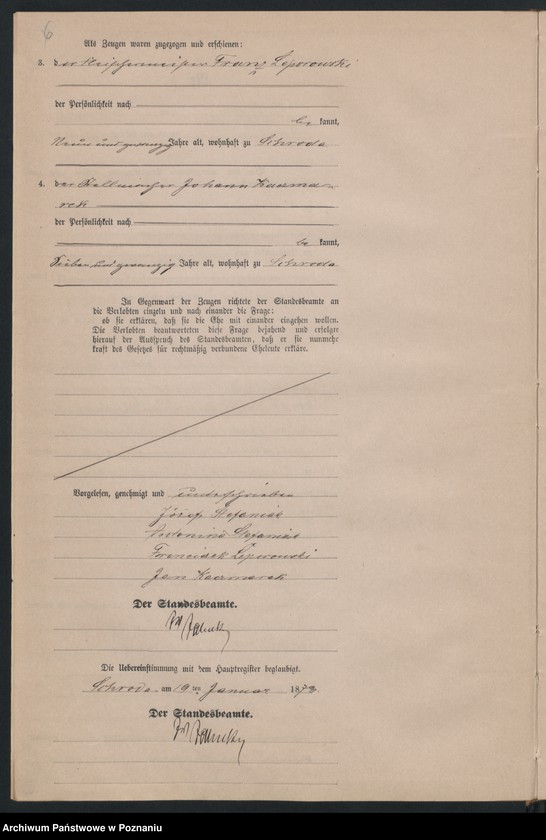 6
Als Zeugen waren zugezogen und erschienen:
3. der Fleischermeister Franz Leporowski
der Persönlichkeit nach
be kannt,
Neun und zwanzig Jahre alt, wohnhaft zu Schroda
4. der Johann Kaczma-
rek
der Persönlichkeit nach
be kannt,
Sieben und zwanzig Jahre alt, wohnhaft zu Schroda
In Gegenwart der Zeugen richtete der Standesbeamte an
die Verlobten einzeln und nach einander die Frage:
ob sie erklären, daß sie die Ehe mit einander eingehen wollen.
Die Verlobten beantworteten diese Frage bejahend und erfolgte
hierauf der Ausspruch des Standesbeamten, daß er sie nunmehr
kraft des Gesetzes für rechtmäßig verbundene Eheleute erkläre.
Vorgelesen, genehmigt und unterschrieben
Józef Stefaniak
Stefaniak
Franciszek Leporowski
Jan Kaczmarek
Der Standesbeamte.
Die Uebereinstimmung mit dem Hauptregister beglaubigt.
Schroda am 19ten Januar 18
Der Standesbeamte.
Archiwum Państwowe w Poznaniu